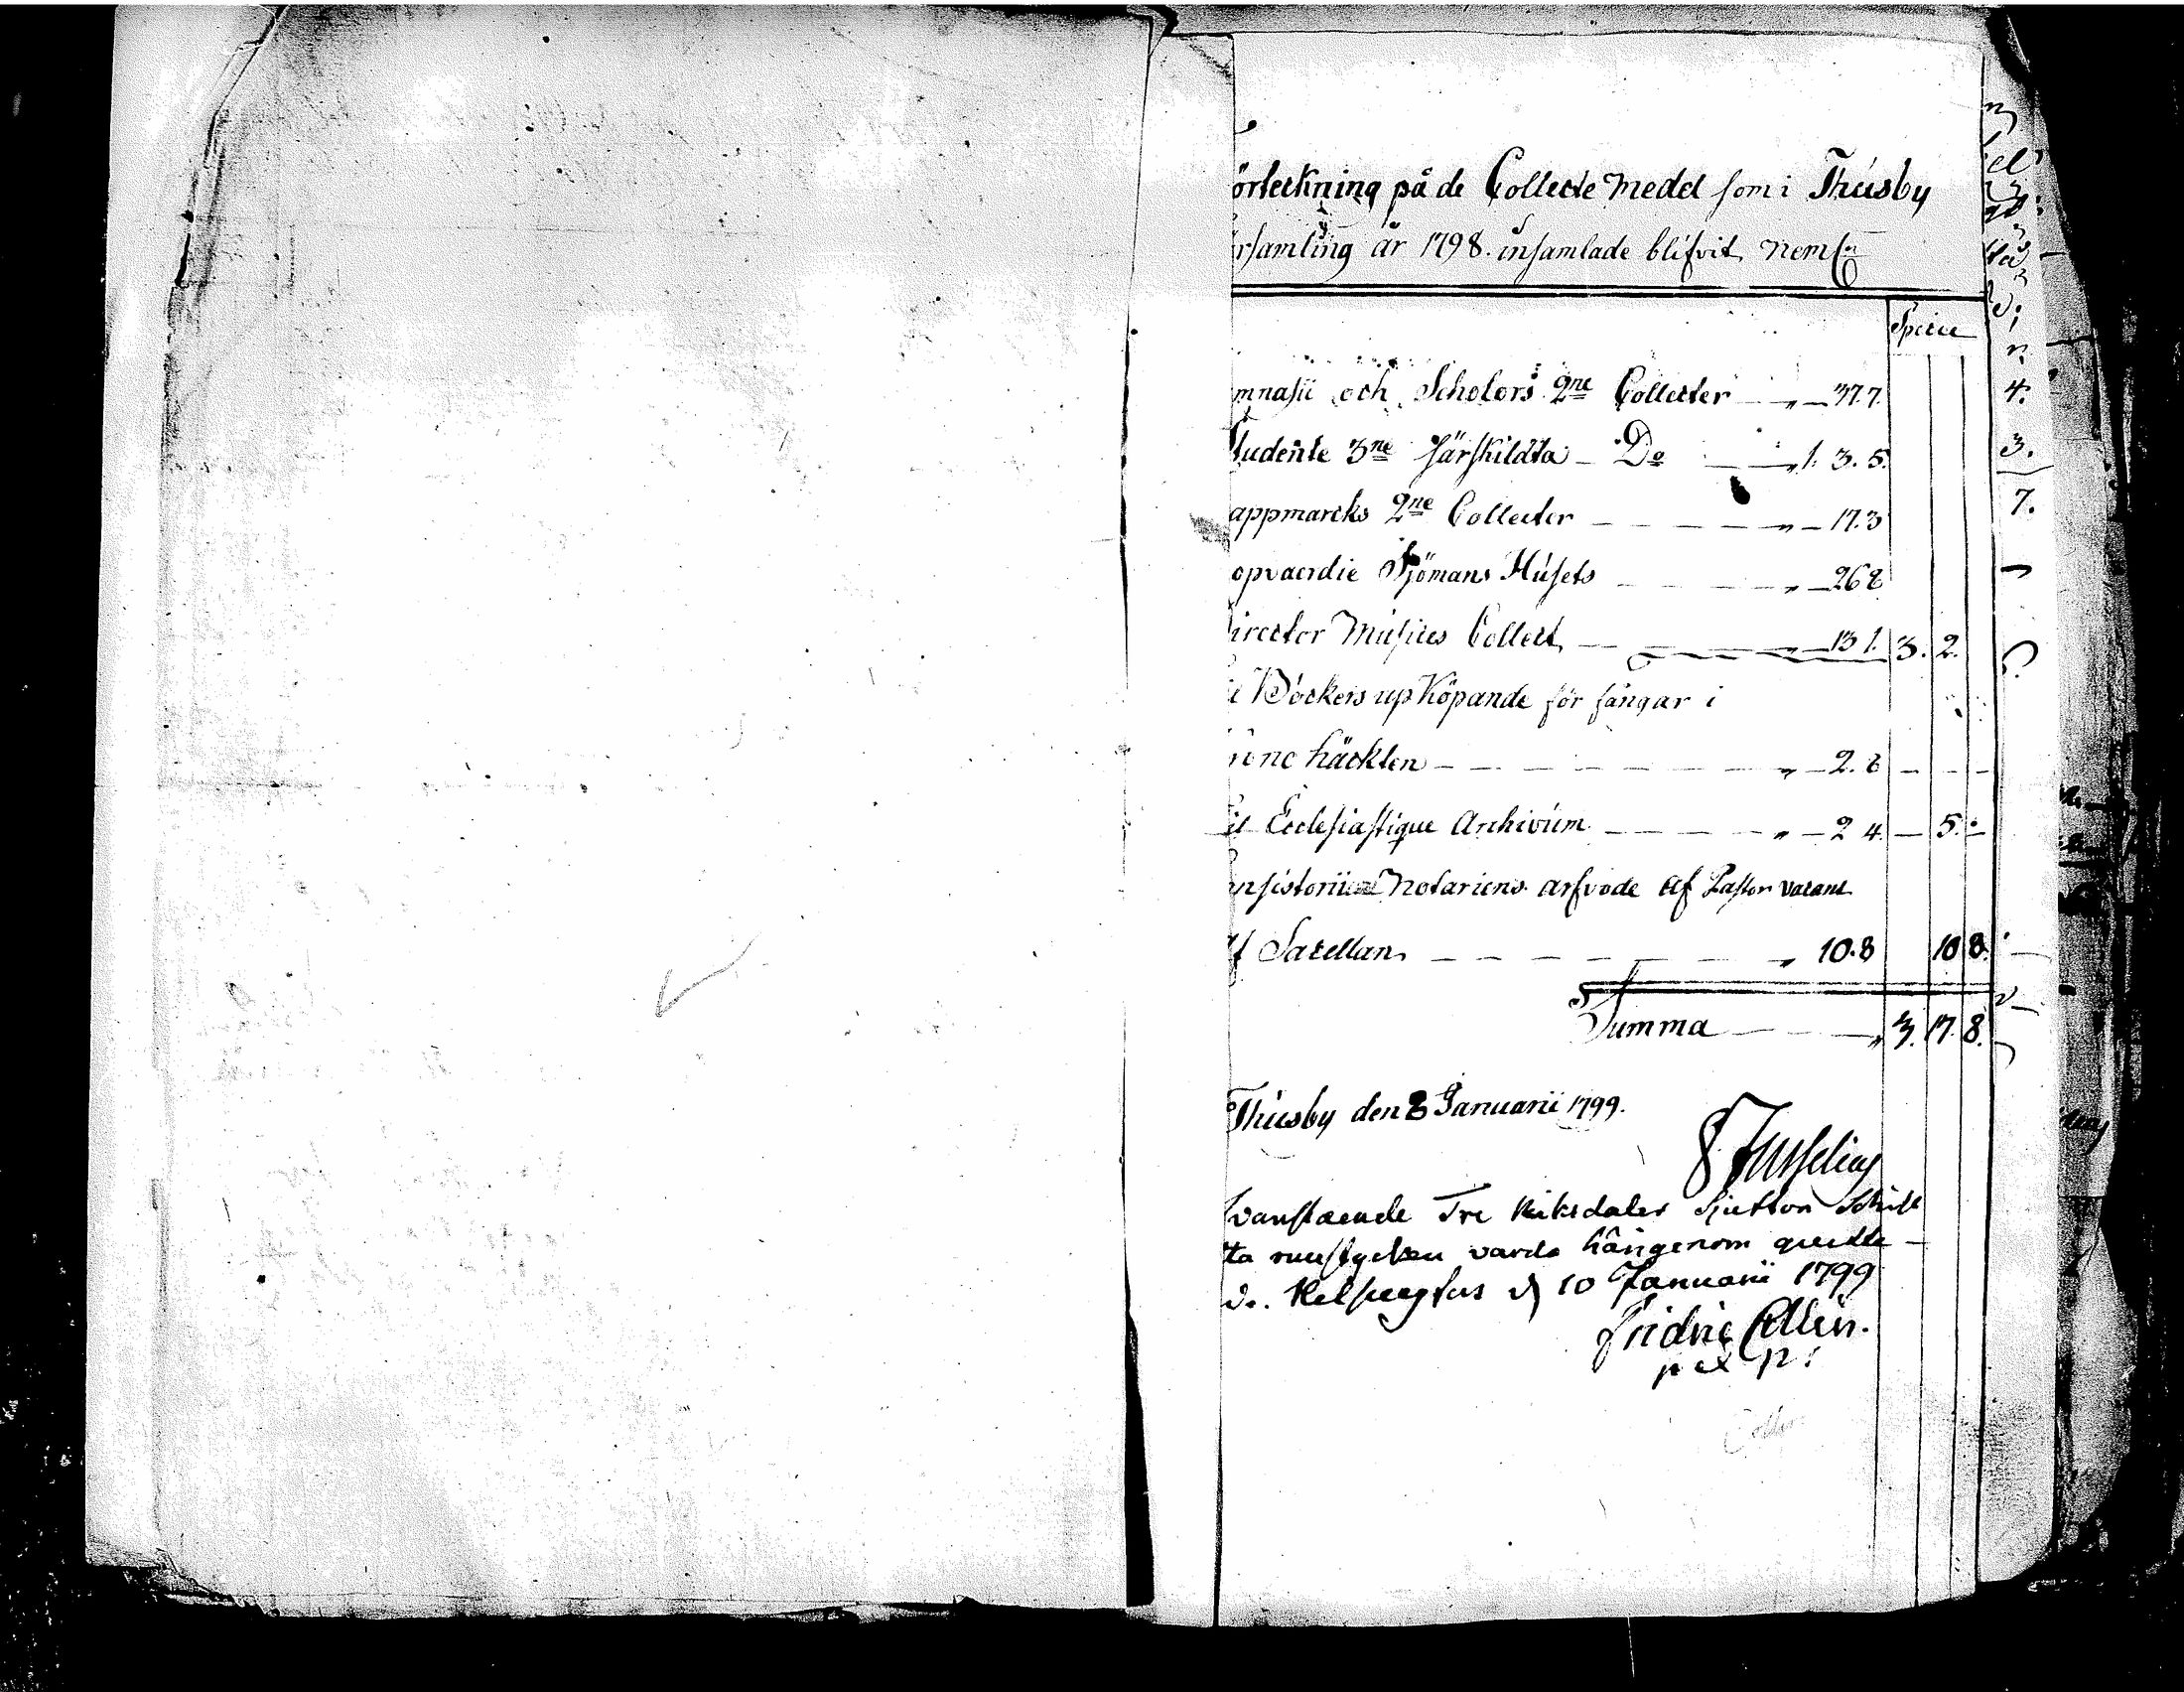 örteckning på de Collecte Medel som i Thusby
rsamling år 1798. insamlade blifvit, nemln
Specie
mnasii och Scholors 2ne Collecter — " — 37.7.
Studente 3ne särskildta — Do — " 1. 3. 5.
appmarcks 2ne Collecter — " — 17.3
opvaerdie Sjömans Husets — " — 26 8
irector Musices Collect, — " — 13 1. 3. 2.
l Böckers upKöpande för fångar i
rono häckten — " — 2. 8 — — —
il Ecclesiastique Archivum — " — 2 4. — 5. —
nsistorii Notariens arfvode af Pastor vacant
f Sacellan, — " 10.8 10 8.
Summa — " 3. 17. 8.
Thusby den 8 Januarii 1799.
vanstaende Tre Riksdaler Sjutton Schill
ta runstycken varda härigenom quitte-
d. Helsingfors d 10 Januarii 1799
Fridric